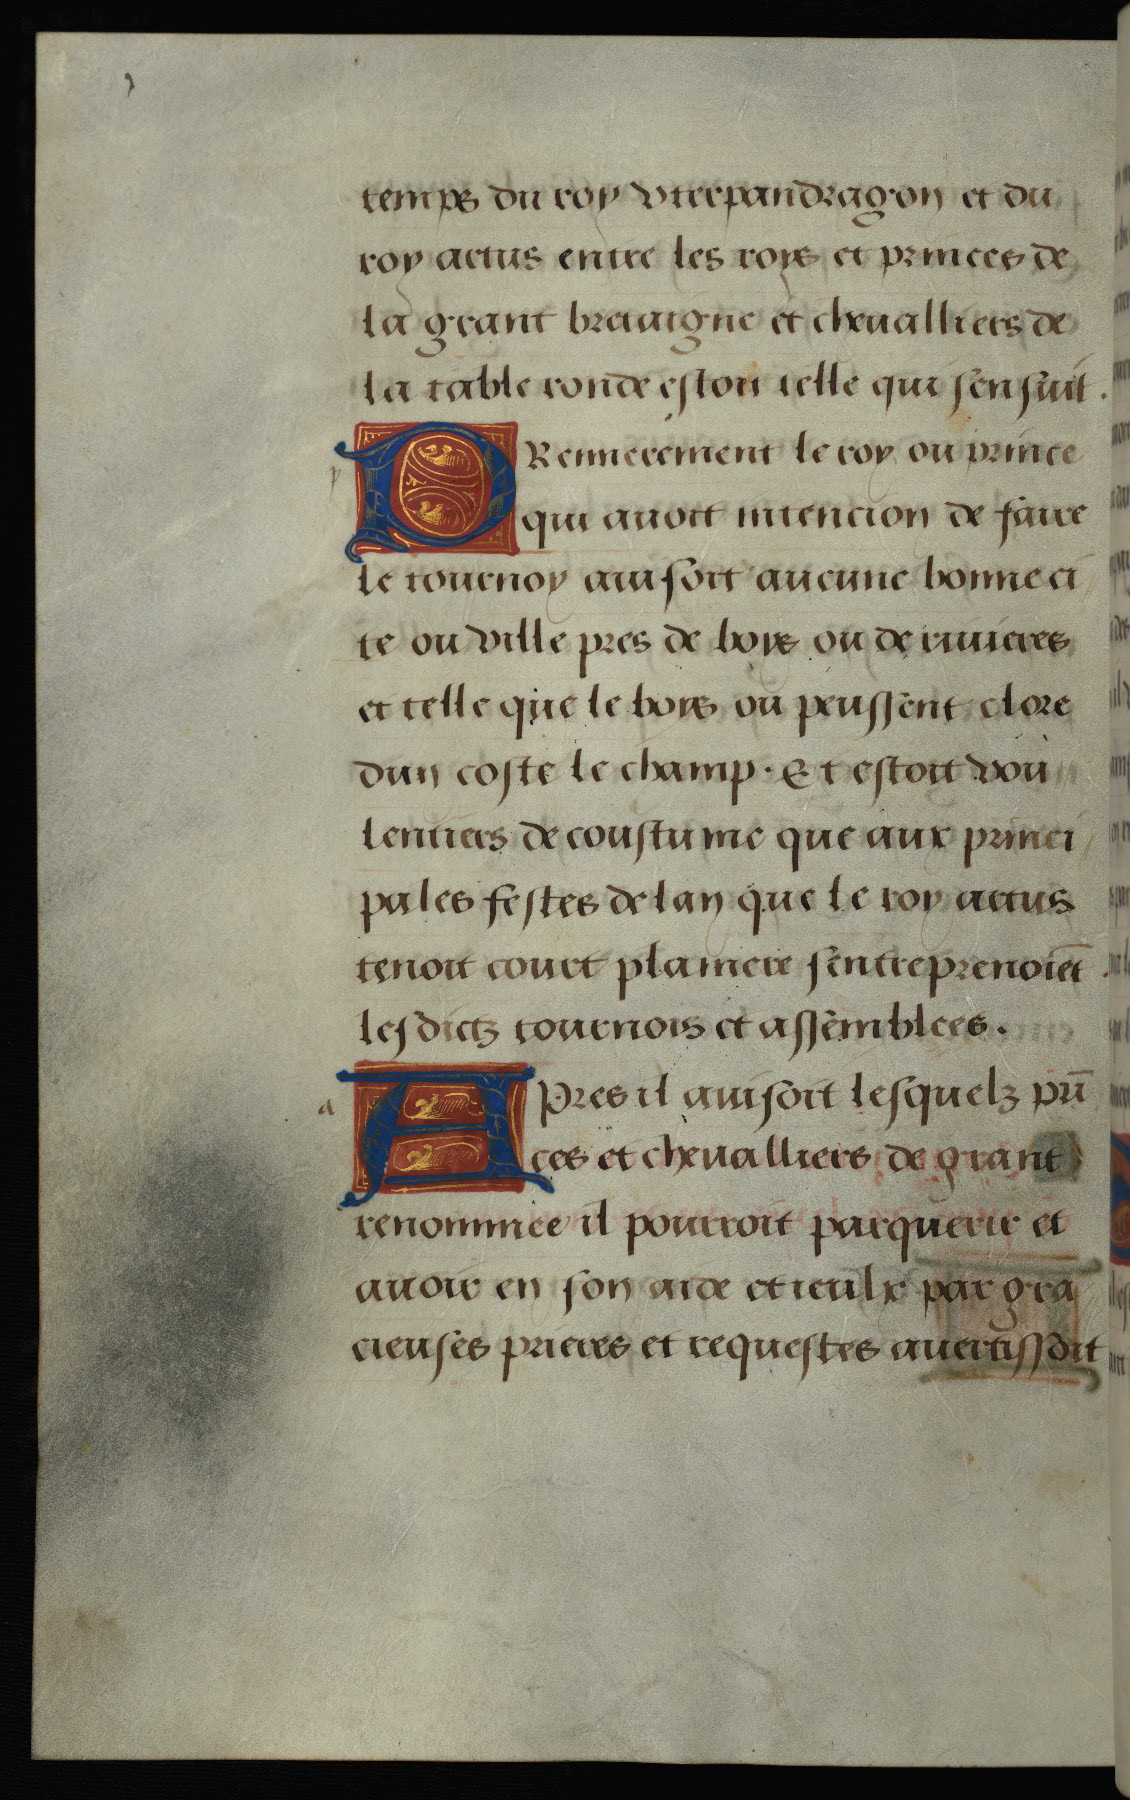 temps du roy vterpandragon et du
roy artus entre les roys et princes de
la grant bretaigne et cheualliers de
la table ronde estoit telle qui sensuit.
p
PRemierement le roy ou prince
qui auoit intencion de faire
le tournoy auisoit aucune bonne ci
te ou ville pres de boys ou de riuieres
et telle que le boys ou peussent clore
dun coste le champ. Et estoit vou
lentiers de coustume que aux princi
pales festes de lan que le roy artus
tenoit court planiere sentreprenoiēt
lesdictz tournois et assemblees.
a
APres il auisoit lesquelz prī
ces et cheualliers de grant
renommee il pourroit parquerir et
auoir en son aide et iceulx par gra
cieuses prieres et requestes auertissoit